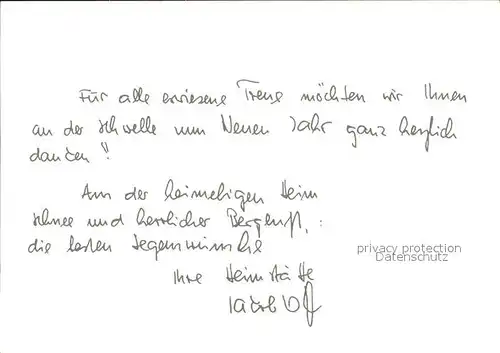 Für alle erwiesene Treue möchten wir Ihnen
an der Schwelle zum Neuen Jahr ganz herzlich
danken!
Aus der heimeligen Heim
Schnee und herrlicher Bergluft,
die besten Segenswünsche
privacy protection
Datenschutz
Ihre Heimstätte